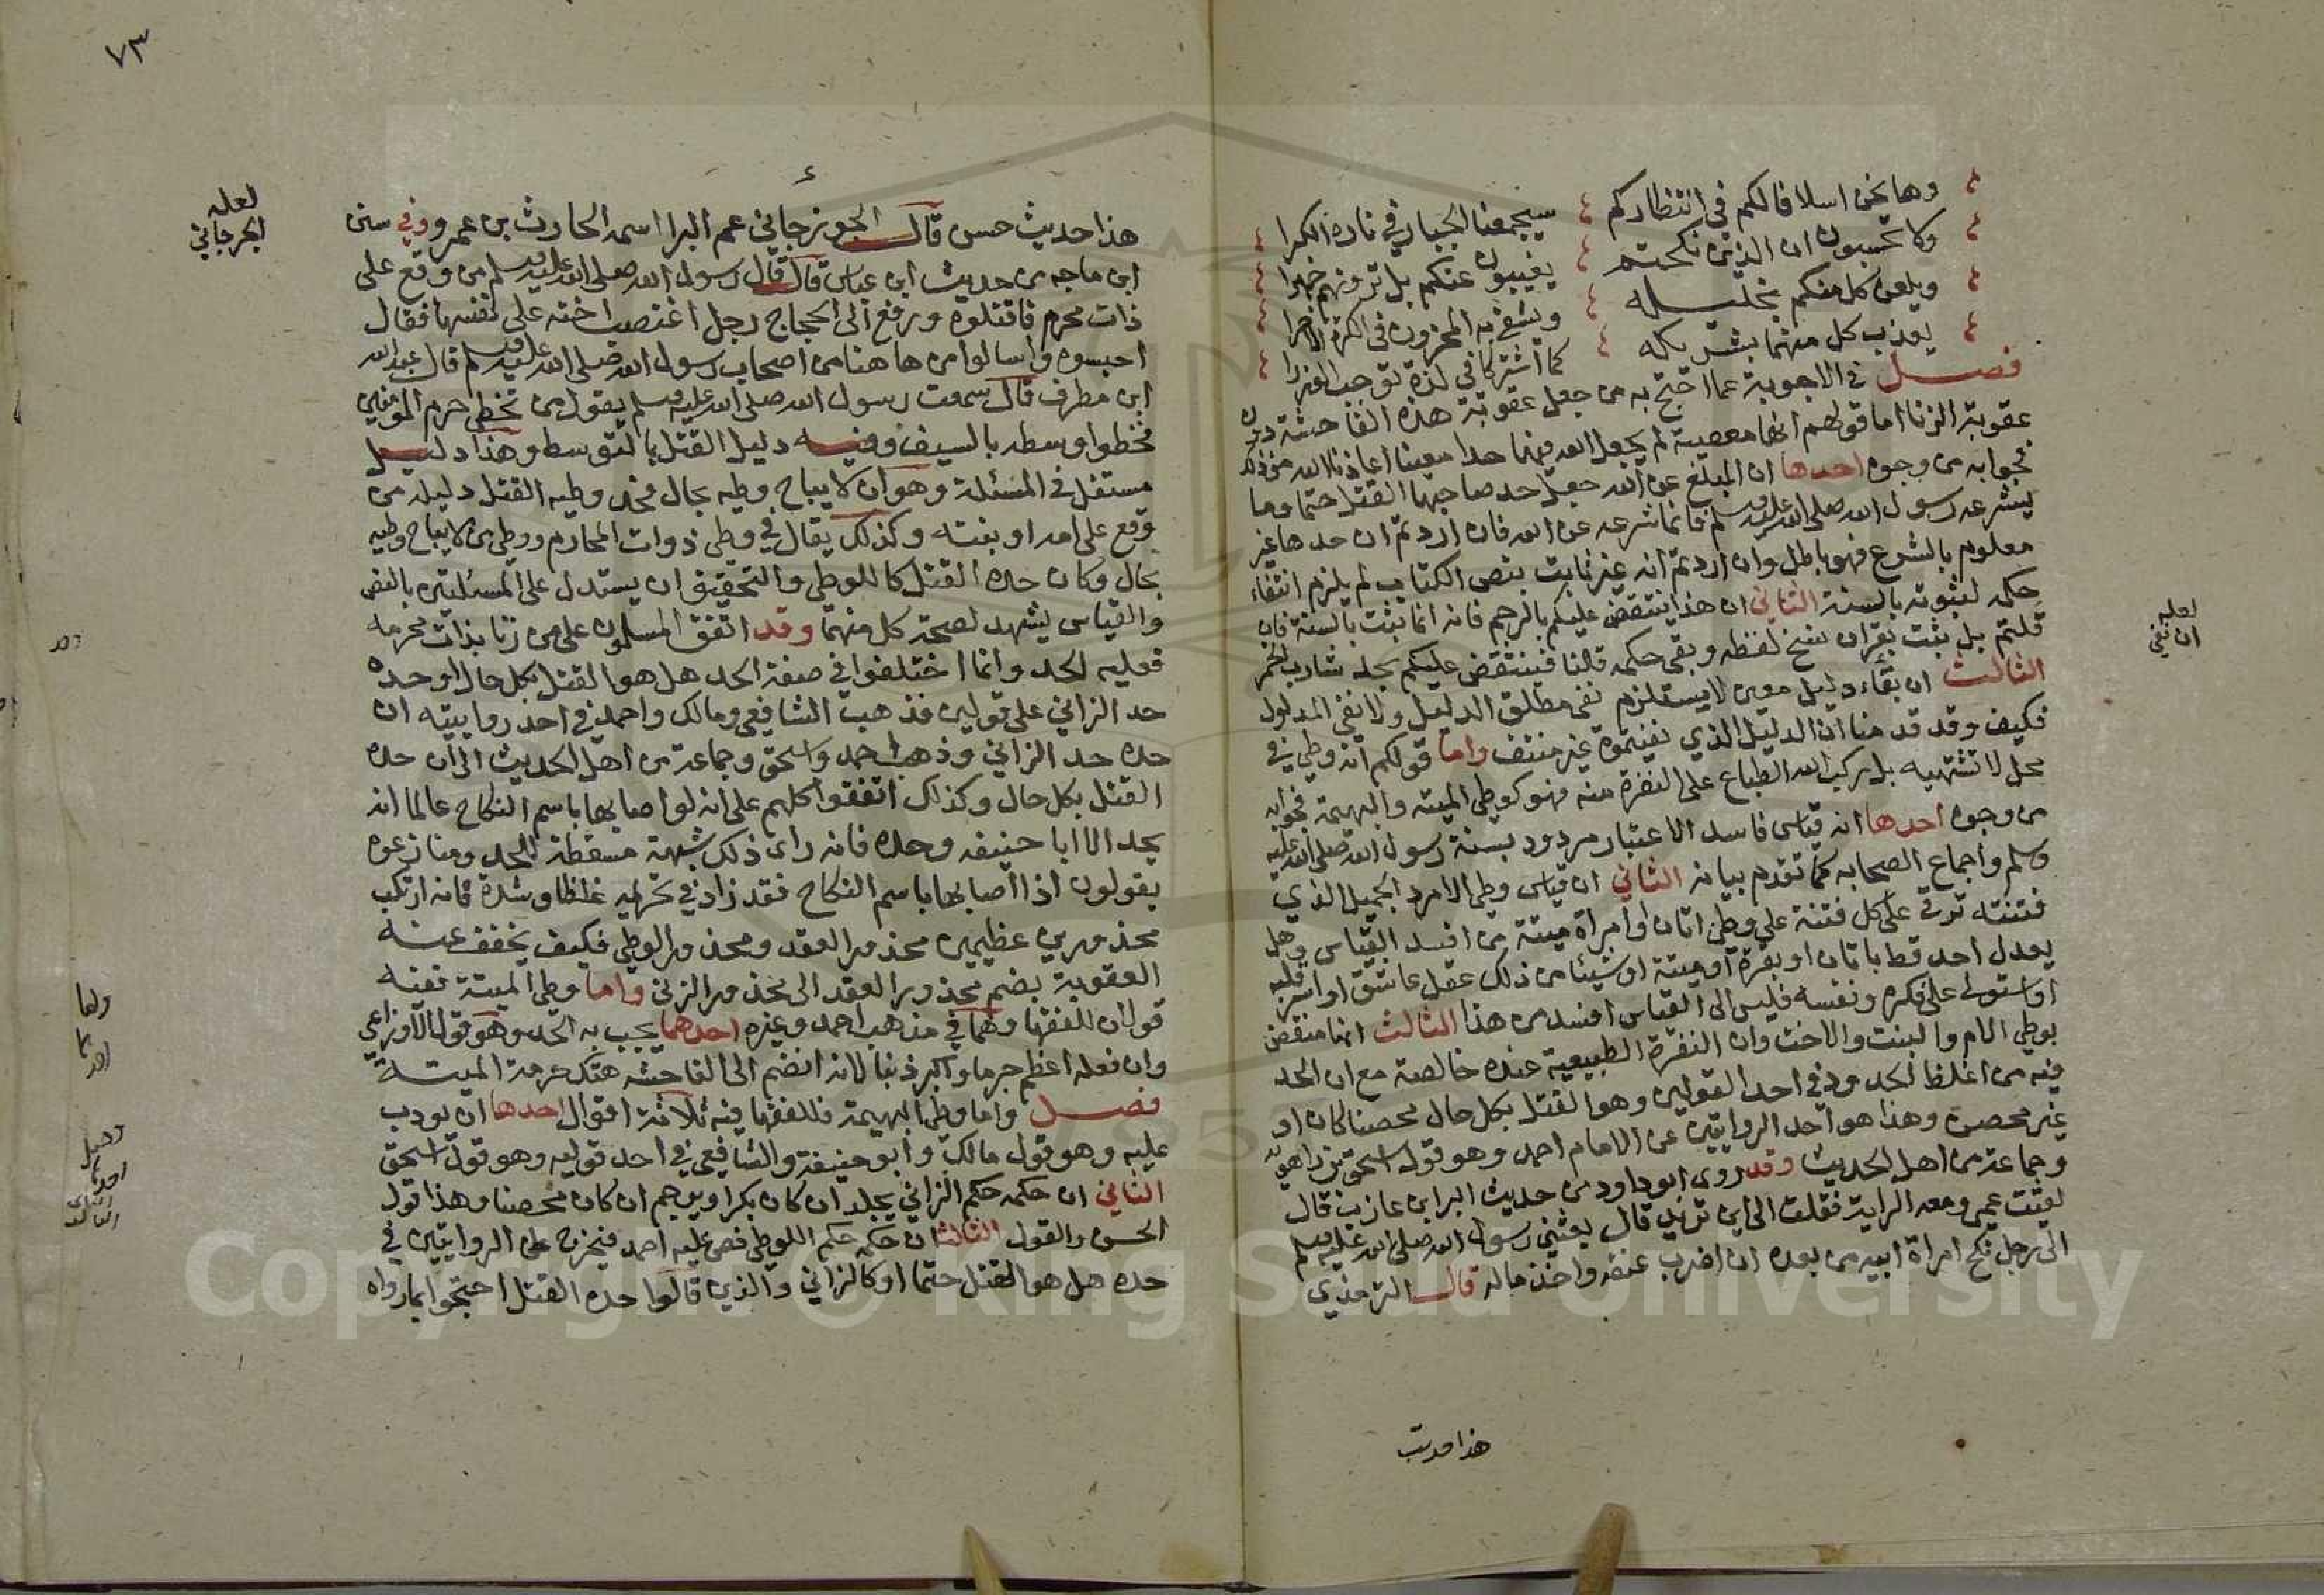 وها نحن اسلافا لكم في انتظاركم سيجمعنا الجبار في ناره الكبرا
ولا تحسبون ان الذين نكحتم يغيبون عنكم بل ترونهم جهرا
ويلعن كل منكم بخليله ويشقى به المحزون في الكرة الاخرا
يعذب كل منهما بشريكه كما اشتركا في لذة توجب الوزرا
فصل في الاجوبة عما احتج به من جعل عقوبة هذه الفاحشة دون
عقوبة الزنا اما قولهم انها معصية لم يجعل الله فيها حدا معينا اعاذنا الله من ذلك
فجوابه من وجوه احدها ان المبلغ عن الله جعل حد صاحبها القتل حتما وما
يشرعه رسول الله صلى الله عليه وسلم فانما شرعه عن الله فان اردتم ان حدها غير
معلوم بالشرع فهو باطل وان اردتم انه غير ثابت بنص الكتاب لم يلزم انتفاء
حكمه لثبوته بالسنة الثاني ان هذا ينتقض عليكم بالرجم فانه انما يثبت بالسنة فان
قلتم بل يثبت بقران نسخ لفظه وبقى حكمه قلنا فينتقض عليكم بجلد شارب الخمر
الثالث ان بقاء دليل معين لا يستلزم نفى مطلق الدليل ولا نفى المدلول
فكيف وقد قدمنا ان الدليل الذي نفيتموه غير منتف واما قولكم انه وطي في
محل لا تشتهيه بل ركب الله الطباع على النفرة منه فهو كوطي الميته والبهيمة فجوابه
من وجوه احدها انه قياس فاسد الاعتبار مردود بسنة رسول الله صلى الله عليه
وسلم واجماع الصحابه كما تقدم بيانه الثاني ان قياس وطي الامرد الجميل الذي
فتنته تربى على كل فتنة على وطي اتان او امراة ميتة من افسد القياس وهل
يعدل احد قط باتان او بقرة او ميتة او شيئا من ذلك عقل عاشق او اسر قلبه
او استولى على فكره ونفسه فليس الى القياس افسد من هذا الثالث انها منتقض
بوطي الام والبنت والاخت وان النفرة الطبيعية عنده خالصة مع ان الحد
فيه من اغلظ الحدود في احد القولين وهو القتل بكل حال محصنا كان او
غير محصن وهذا هو احد الروايتين عن الامام احمد وهو قول اسحق بن راهويه
وجماعة من اهل الحديث وقد روى ابو داود من حديث البرا بن عازب قال
لقيت عمي ومعه الراية فقلت الى اين تريد قال بعثني رسول الله صلى الله عليه وسلم
الى رجل نكح امراة ابيه من بعده ان اضرب عنقه واخذ ماله قال الترمذي
هذا حديث
لعله
ان نفي
٧٣
هذا حديث حسن قال الجوزجاني عم البرا اسمه الحارث بن عمرو وفي سنن
ابن ماجه من حديث ابن عباس قال قال رسول الله صلى الله عليه وسلم من وقع على
ذات محرم فاقتلوه ورفع الى الحجاج رجل اغتصب اخته على نفسها فقال
احبسوه واسالوا من هاهنا من اصحاب رسول الله صلى الله عليه وسلم قال عبد الله
ابن مطرف قال سمعت رسول الله صلى الله عليه وسلم يقول من تخطى حرم المومنين
فخطوا وسطه بالسيف وفيه دليل القتل بالتوسط وهذا دليل
مستقل في المسئلة وهو ان لا يباح وطيه بحال فحد وطيه القتل دليله من
وقع على امه او بنته وكذلك يقال في وطي ذوات المحارم ووطي من لا يباح وطيه
بحال وكان حده القتل كاللوطي والتحقيق ان يستدل على المسئلتين بالنص
والقياس يشهد لصحة كل منهما وقد اتفق المسلمون على من زنا بذات محرمه
فعليه الحد وانما اختلفوا في صفة الحد هل هو القتل بكل حال او حده
حد الزاني على قولين فذهب الشافعي ومالك واحمد في احد روايتيه ان
حده حد الزاني وذهب احمد واسحق وجماعة من اهل الحديث الى ان حده
القتل بكل حال وكذلك اتفقوا كلهم على انه لو اصابها باسم النكاح عالما انه
يحد الا ابا حنيفه وحده فانه راى ذلك شبهة مسقطة للحد ومنازعوه
يقولون اذا اصابها باسم النكاح فقد زاد في تحريمه غلظا وشدة فانه ارتكب
محذورين عظيمين محذور العقد ومحذور الوطي فكيف يخفف عنه
العقوبة بضم محذور العقد الى محذور الزنى واما وطي الميتة ففيه
قولان للفقها وهما في مذهب احمد وغيره احدهما يجب به الحد وهو قول الاوزاعي
وان فعله اعظم جرما واكبر ذنبا لانه انضم الى الفاحشه هتك حرمة الميتة
فصل واما وطي البهيمة فللفقها فيه ثلاثة اقوال احدها ان يودب
عليه وهو قول مالك وابو حنيفة والشافعي في احد قوليه وهو قول اسحق
الثاني ان حكمه حكم الزاني يجلد ان كان بكرا ويرجم ان كان محصنا وهذا قول
الحسن والقول الثالث ان حكمه حكم اللوطي فص عليه احمد فيخرج على الروايتين في
حده هل هو القتل حتما او كالزاني والذين قالوا حده القتل احتجوا بما رواه
لعله
الجرجاني